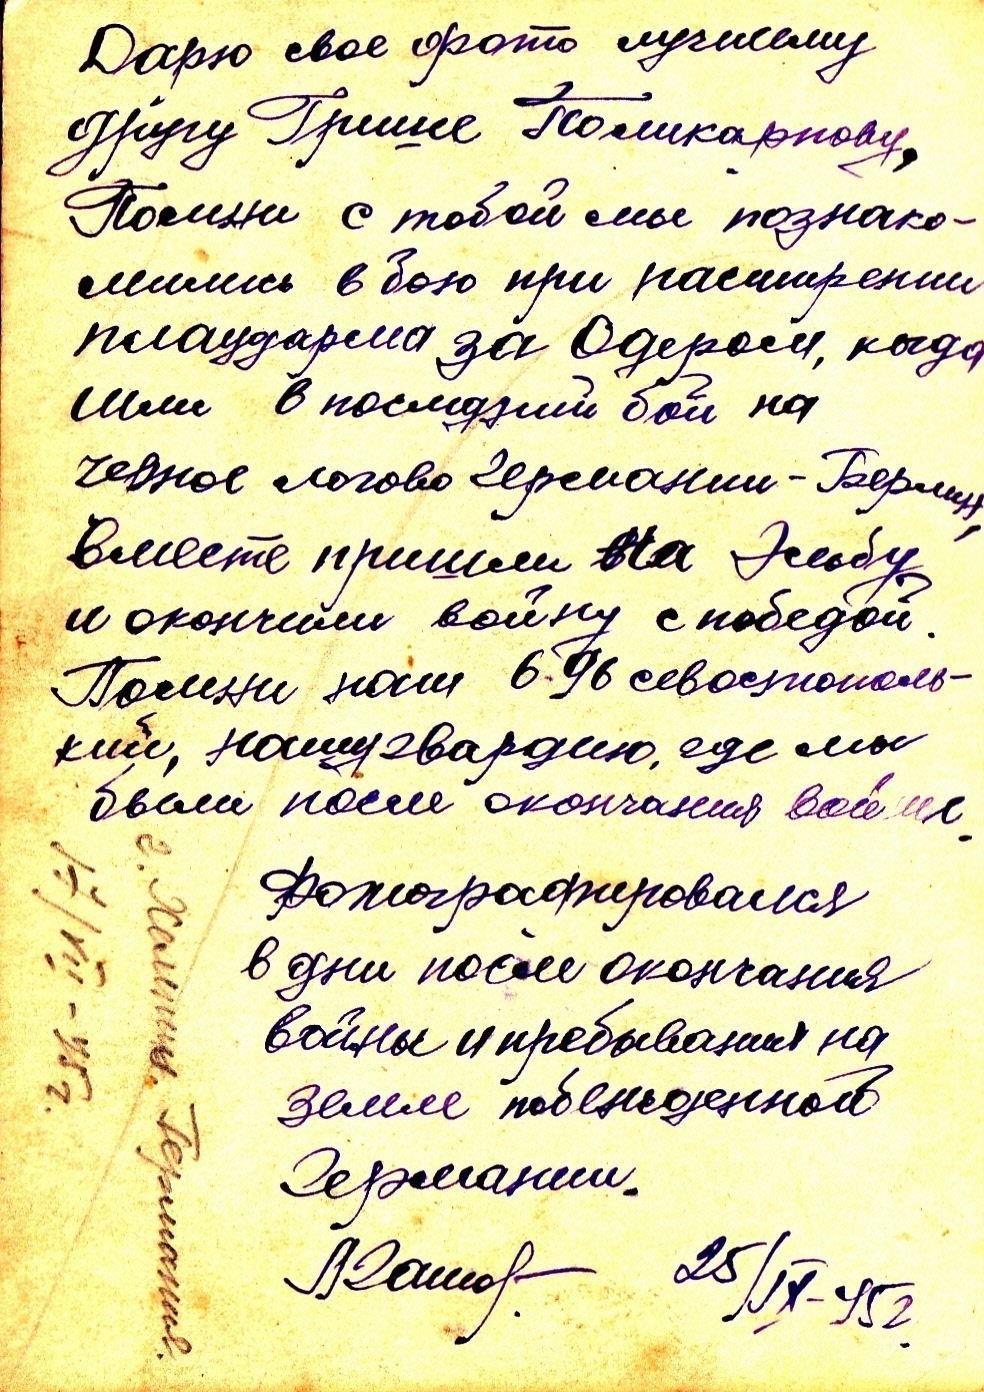 Дарю свое фото лучшему
другу Грише Поликарпову,
Помни с тобой мы познако-
мились в бою при расширении
плаударма за Одером, когда
шли в последний бой на
черное логово Германии - Берлин,
вместе пришли на Эльбу
и окончили войну с победой.
Помни наш 696 севостополь-
кий, нашу гвардию, где мы
были после окончания войны.
Фотографировался
в дни после окончания
войны и пребывания на
земле побежденной
Германии.
25/IX-45г.
г. Германия.
/VII-45г.